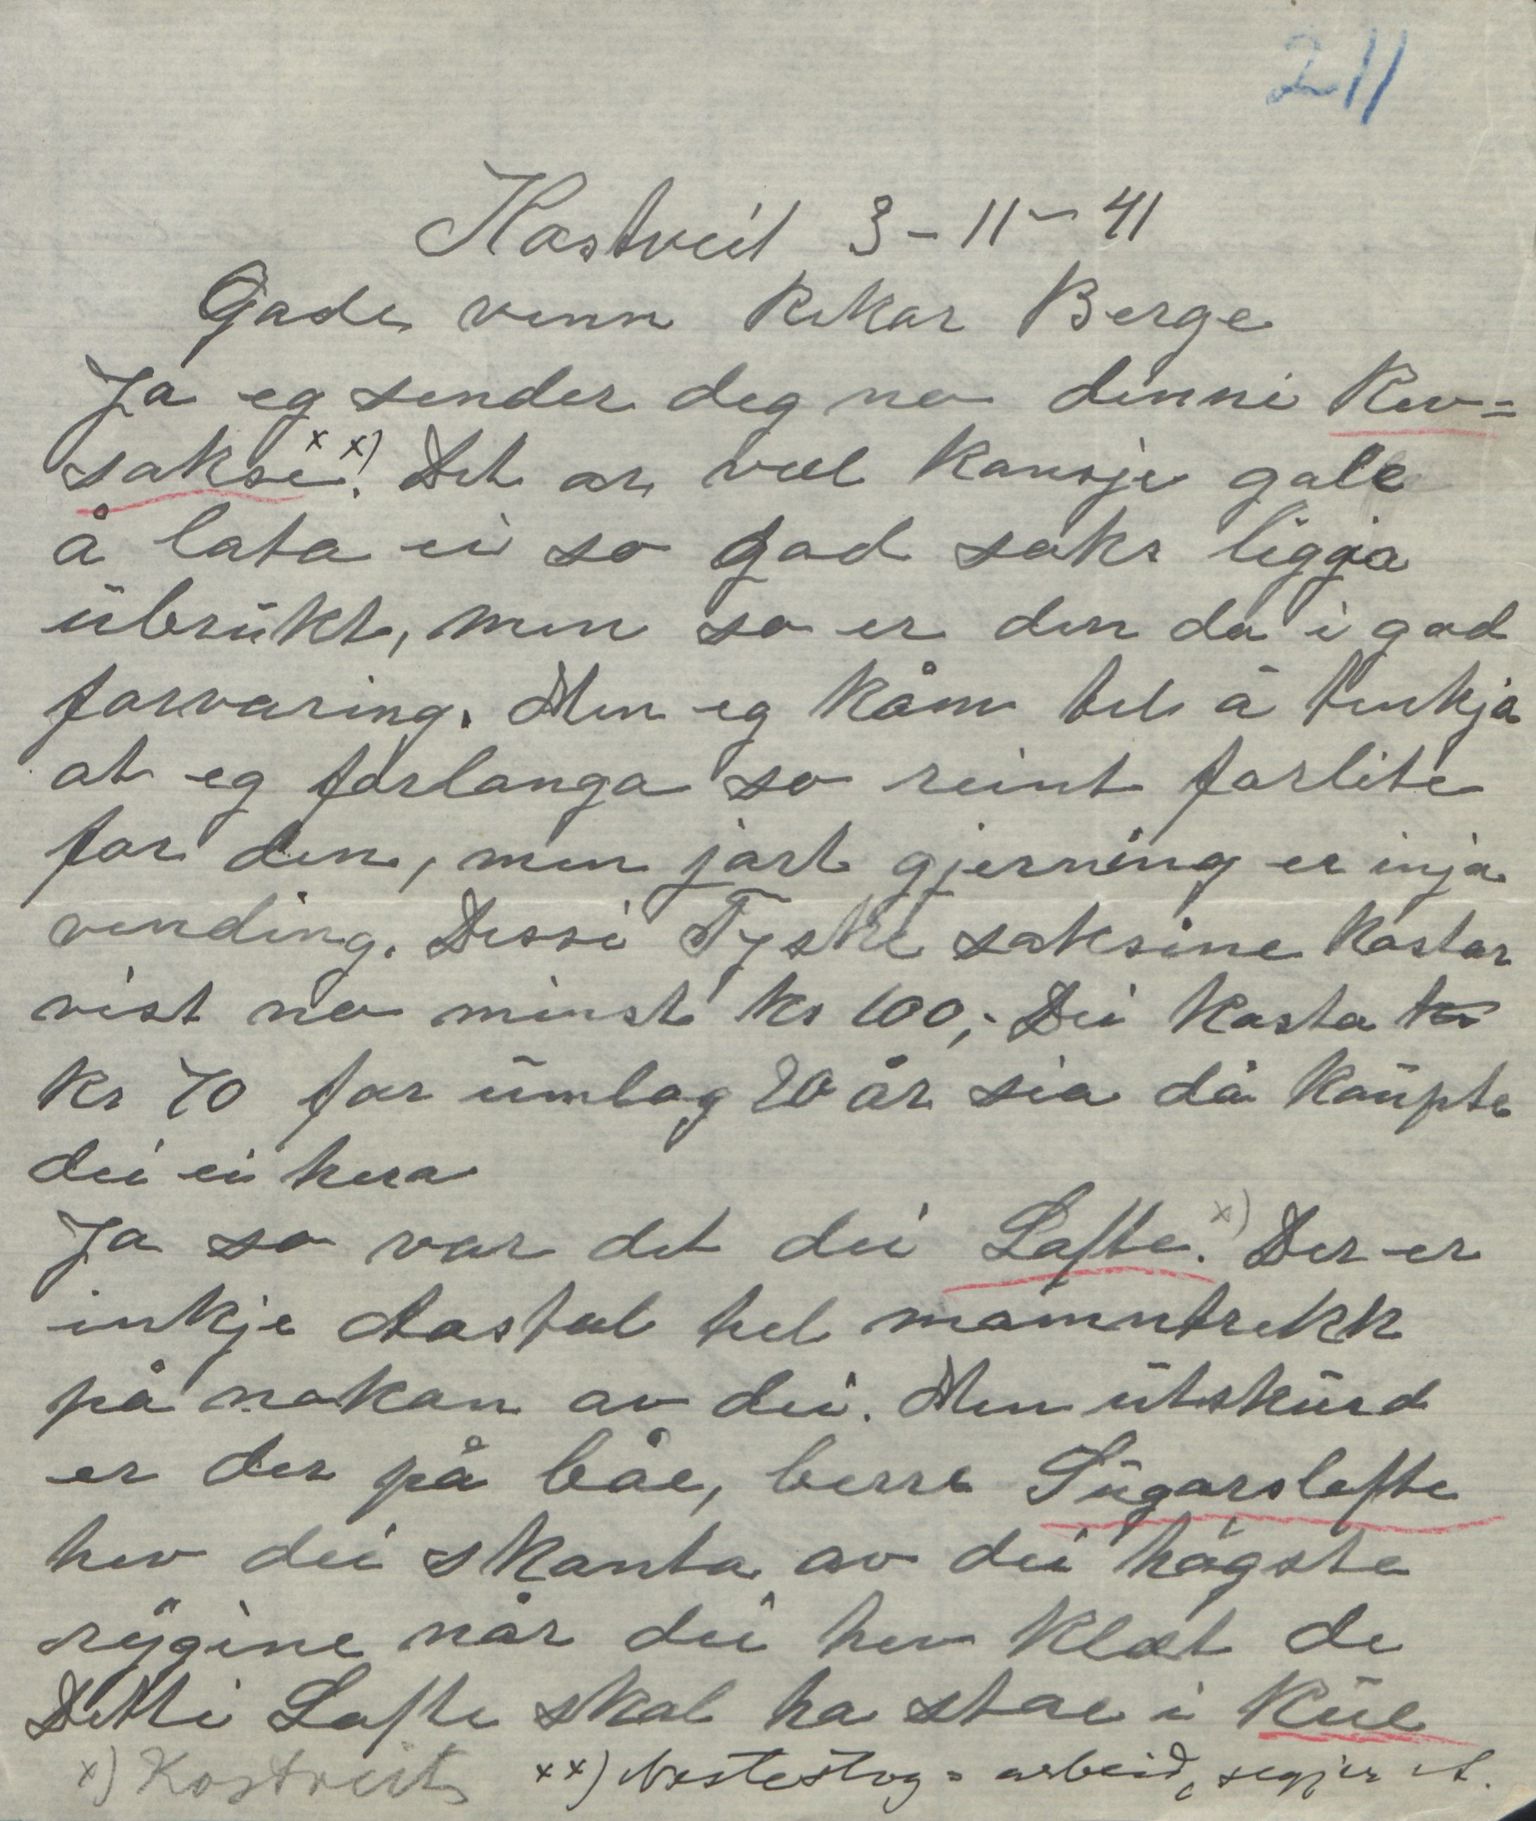 211
Kostveit 3-11-41
Gode venn Rikar Berge
Ja eg sender deg no denni Rev=
saksi xx). Det er vel kansje gale
å lata ei so god saks liggja
ubrukt, men so er den da i god
forvaring. Men eg kåm tel å tenkja
at eg forlanga so reint forlite
for den, men jort gjerning er inja
vending. Dessi Tyske saksine kostar
vist no minst kr 100,- Dei kosta
kr 70 for umlag 20 år sia då kaupte
dei ei hera
Ja so var det dei Lofte. x) Der er
inkje Aastal hel mamntrekk
på nokan av dei. Men utskurd
er der på båe, berre Sugarslofte
hev dei skanta av dei høgste
rygine når dei hev klæt de
Detti Lofte skal ha stae i Kúe
x) Kostveit xx) arbeid, segjer